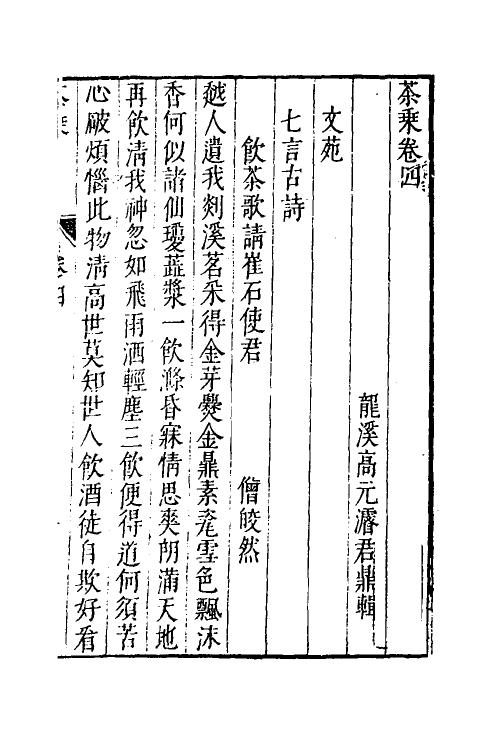 茶乗卷四
龍溪高元濬君鼎輯
文苑
七言古詩
飲茶歌請崔石使君　僧皎然
越人遺我剡溪茗采得金芽爨金鼎素瓷雪色飄沫
香何似諸仙瓊蕋漿一飲滌昏寐情思爽朗滿天地
再飲淸我神忽如飛雨洒輕塵三飲便得道何須苦
心破煩惱此物淸高世莫知世人飲酒徒自欺好看
卷四